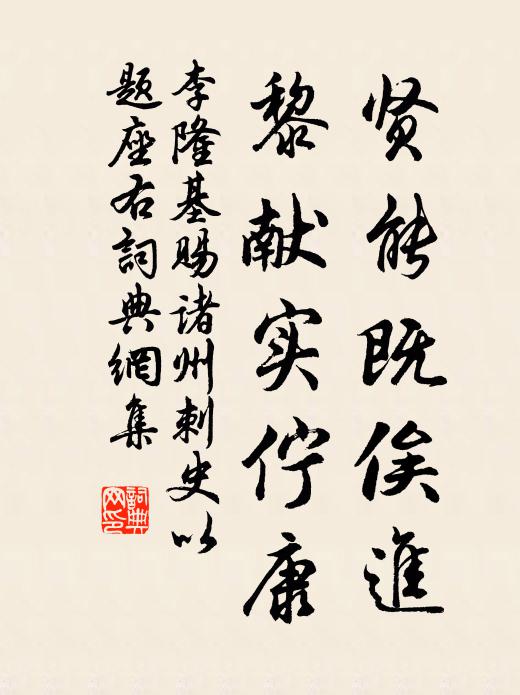 贤能既俟進
黎献实佇康
李隆基赐诸州刺史以
题座右詞典網集
詞典网印